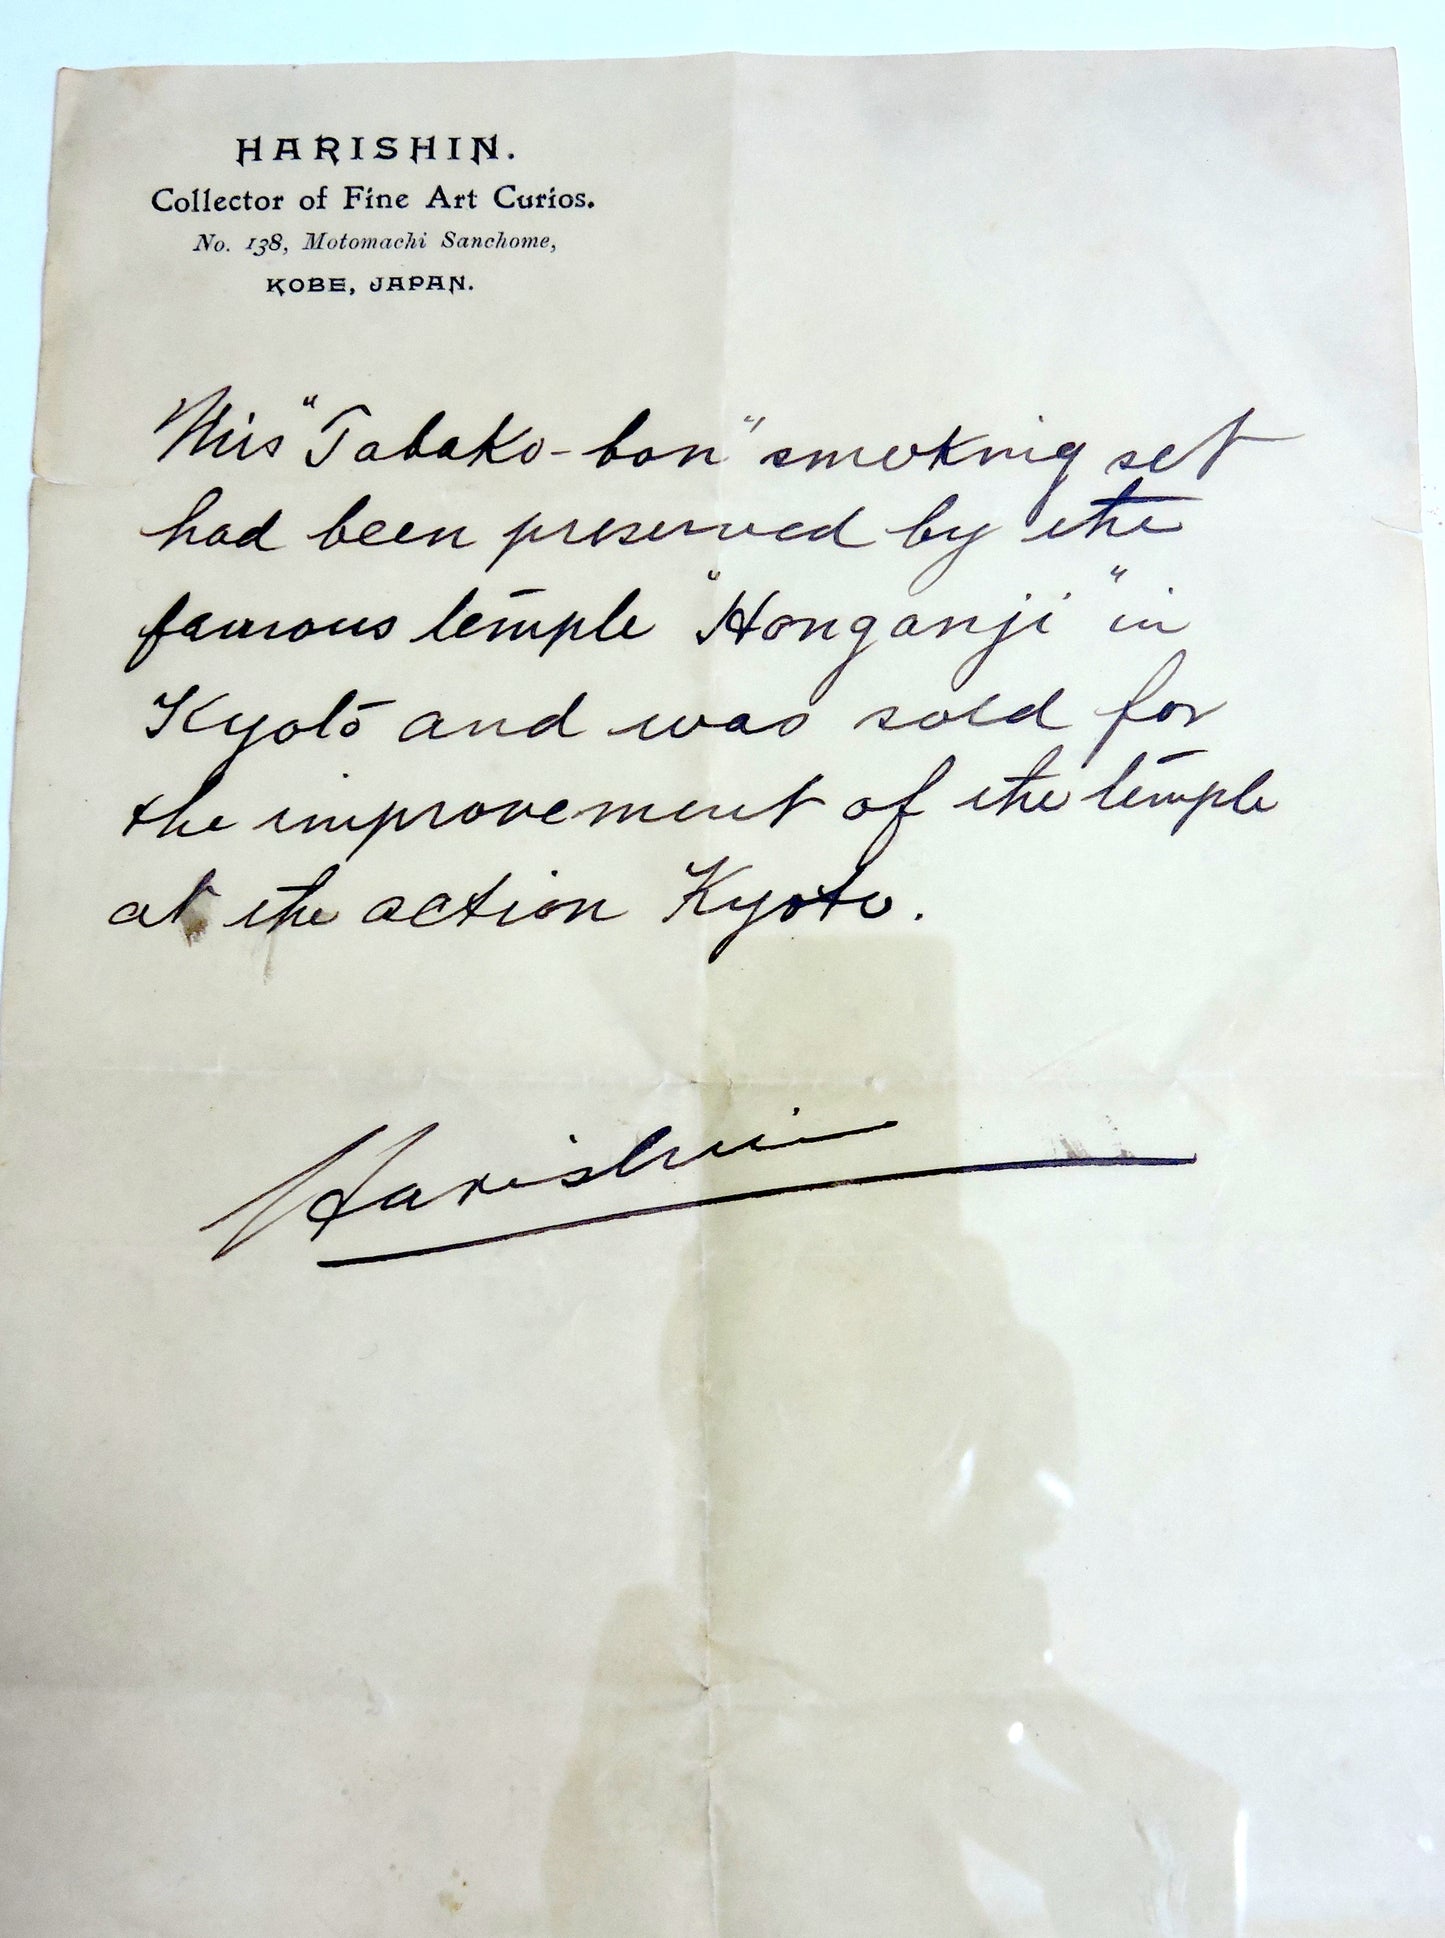 HARISHIN.
Collector of Fine Art Curios.
No. 138, Motomachi Sanchome,
KOBE, JAPAN.
This "Tabako-bon" smoking set
had been preserved by the
famous temple "Honganji" in
Kyoto and was sold for
the improvement of the temple
at the action Kyoto.
Harishin